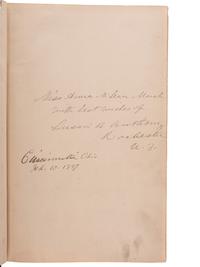 Miss Anna M
with best wishes of
Susan B Anthony
Rochester
N. Y.
Cincinnati Ohio
Feb. 10.